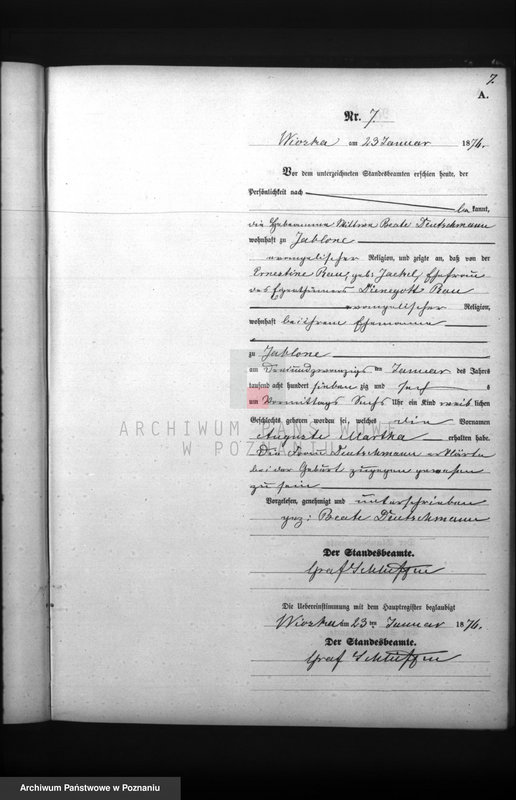 7.
A.
Nr. 7.
Wiozka am 23 Januar 1876.
Vor dem unterzeichneten Standesbeamten erschien heute, der
Persönlichkeit nach
be kannt,
die Hebeamme Wittwe Beate Deutschmann
wohnhaft zu Jablone
evangelischer Religion, und zeigte an, daß von der
Ernestine Rau, geb: Jaekel, Ehefrau
des Eigenthümers Dienegott Rau
evangelischer Religion,
wohnhaft bei ihrem Ehemanne
zu Jablone
am Dreiundzwanzigs ten Januar des Jahrs
tausend acht hundert sieben zig und sech s
um Vormittags Sechs Uhr ein Kind weib lichen
Geschlechts geboren worden sei, welches die Vornamen
Auguste Martha erhalten habe.
Die Frau Deutschmann erklärte
bei der Geburt zugegen gewesen
zu sein
Vorgelesen, genehmigt und unterschrieben
gez: Beate Deutschmann
Der Standesbeamte.
Graf
Die Uebereinstimmung mit dem Hauptregister beglaubigt
Wiozka am 23 ten Januar 1876.
Der Standesbeamte.
Graf
ARCHIWUM PAŃSTWOWE
W POZNANIU
Archiwum Państwowe w Poznaniu